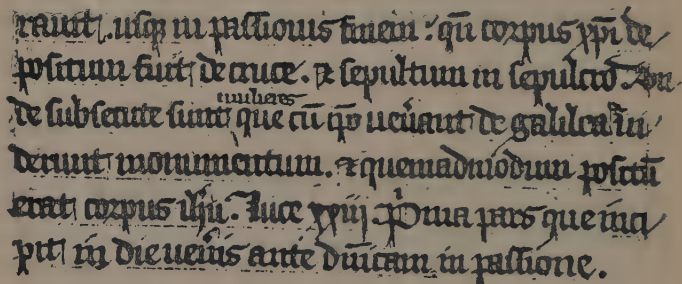 rauit. usq; in passionis finem: qn̄ corpus xp̄i de/
positum fuit de cruce. ⁊ sepultum in sepulcro. Vn/
de subsecute sunt mulieres que cū ip̄o uen̄ant de galilea ui/
derunt monumentum. ⁊ quemadmodum positū
erat corpus ih̄u. Luce xxiij Pͥma pars que inci/
pit in die uen̄is ante dn̄icam in passione.